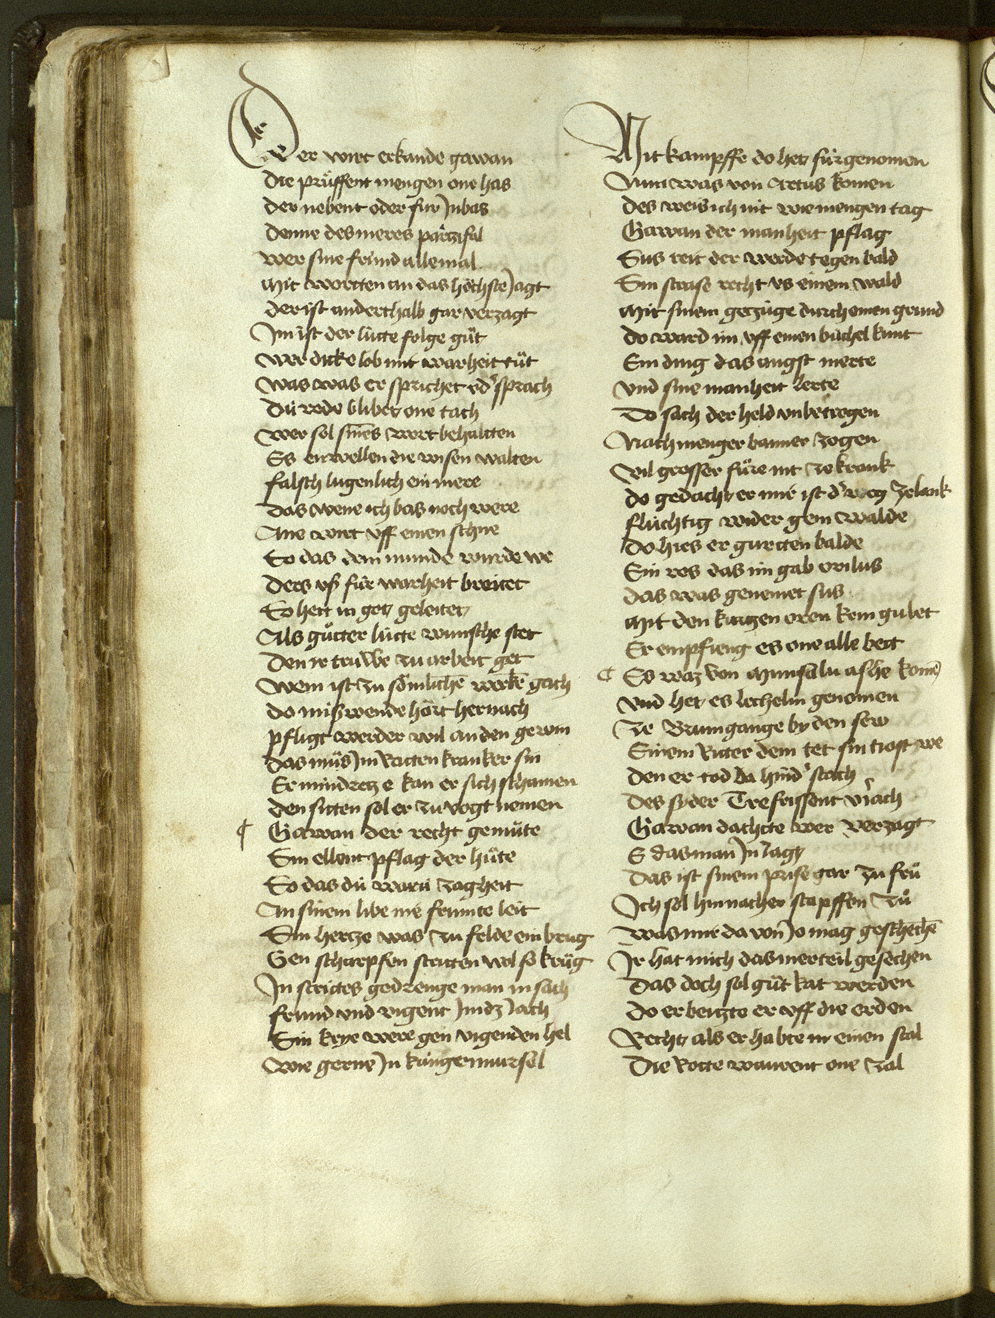 Der wirt erkande gawan
Die prüffent mengen one has
der nebent oder für Jnbas
Denne des meres parzifal
Wer sine fründ allemal
Mit wortten an das höchste Jagt
der ist anderthalb gar verzagt
Im ist der lütte folge güt
Wer dicke lob mit warheit tüt
Was was er sprichet od' sprach
Dü rede blibet one tach
Wer sol sines wort behaltten
Es enwellen die wisen walten
falsch lugenlich ein mere
das wene ich bas noch were
Ane wirt vff einen schne
So das dem munde wurde we
Ders vß für warheit breitet
So hett in got geleitet
Als gütter lütte wunsche stet
Den ir trüwe zu arbeit get
Wem ist zu sömliche werke gach
do mißwende hört hernach
pfligt werder wil an den gewin
das müs Jn Ratten kranker sin
Er mindret e kan er sich schamen
den sitten sol er zu vogt nemen
Gawan der recht gemüte
Sin ellent pflag der hüte
So das dü waru zagheit
An sinem libe nie frumte leit
Sin hertze was zu felde ein brug
Gen scharpfen stritten wol so krüg
In strites gedrenge man in sach
fründ vnd vigent Jm dz Jach
Sin krye were gen vigenden hel
Wie gerne Jn kungrimursel
Mit kampffe do hett fürgenomen
Nun was von Artus komen
des weis ich nit wie mengen tag
Gawan der manheit pflag
Sus reit der werde tegen bald
Sin strasse recht vs einem wald
Mit sinem gezüge durch einen grund
do ward im vff einen büchel kunt
Ein ding das angst merte
vnd sine manheit lerte
Do sach der held vnbetrogen
Nach menger banner zogen
Vil grosser füre nit ze krank
do gedacht er mir ist d' weg ze lank
flüchtig wider gem walde
Do hies er gurtten balde
Ein ros das im gab orilus
das was genemet sus
Mit den kurgen oren kringulet
Er empfieng es one alle bett
Es waz von Munsaluasche kome
vnd het es lechelin genomen
Ze Brumgange by den sew
Einem Ritter dem tet sin trost we
den er tod da hind' stach
des syder Trefrissent v'iach
Gawan dachtte wer verzagt
E das man Jn Jagt
Das ist sinem prise gar zu frü
Ich sol hinnacher stapffen zü
Was mir da von Jo mag gescheche
Ir hat mich das merteil gesechen
Das doch sol güt rat werden
do erbeitzte er vff die erden
Recht als er habte in einen stal
Die Rotte warent one zal